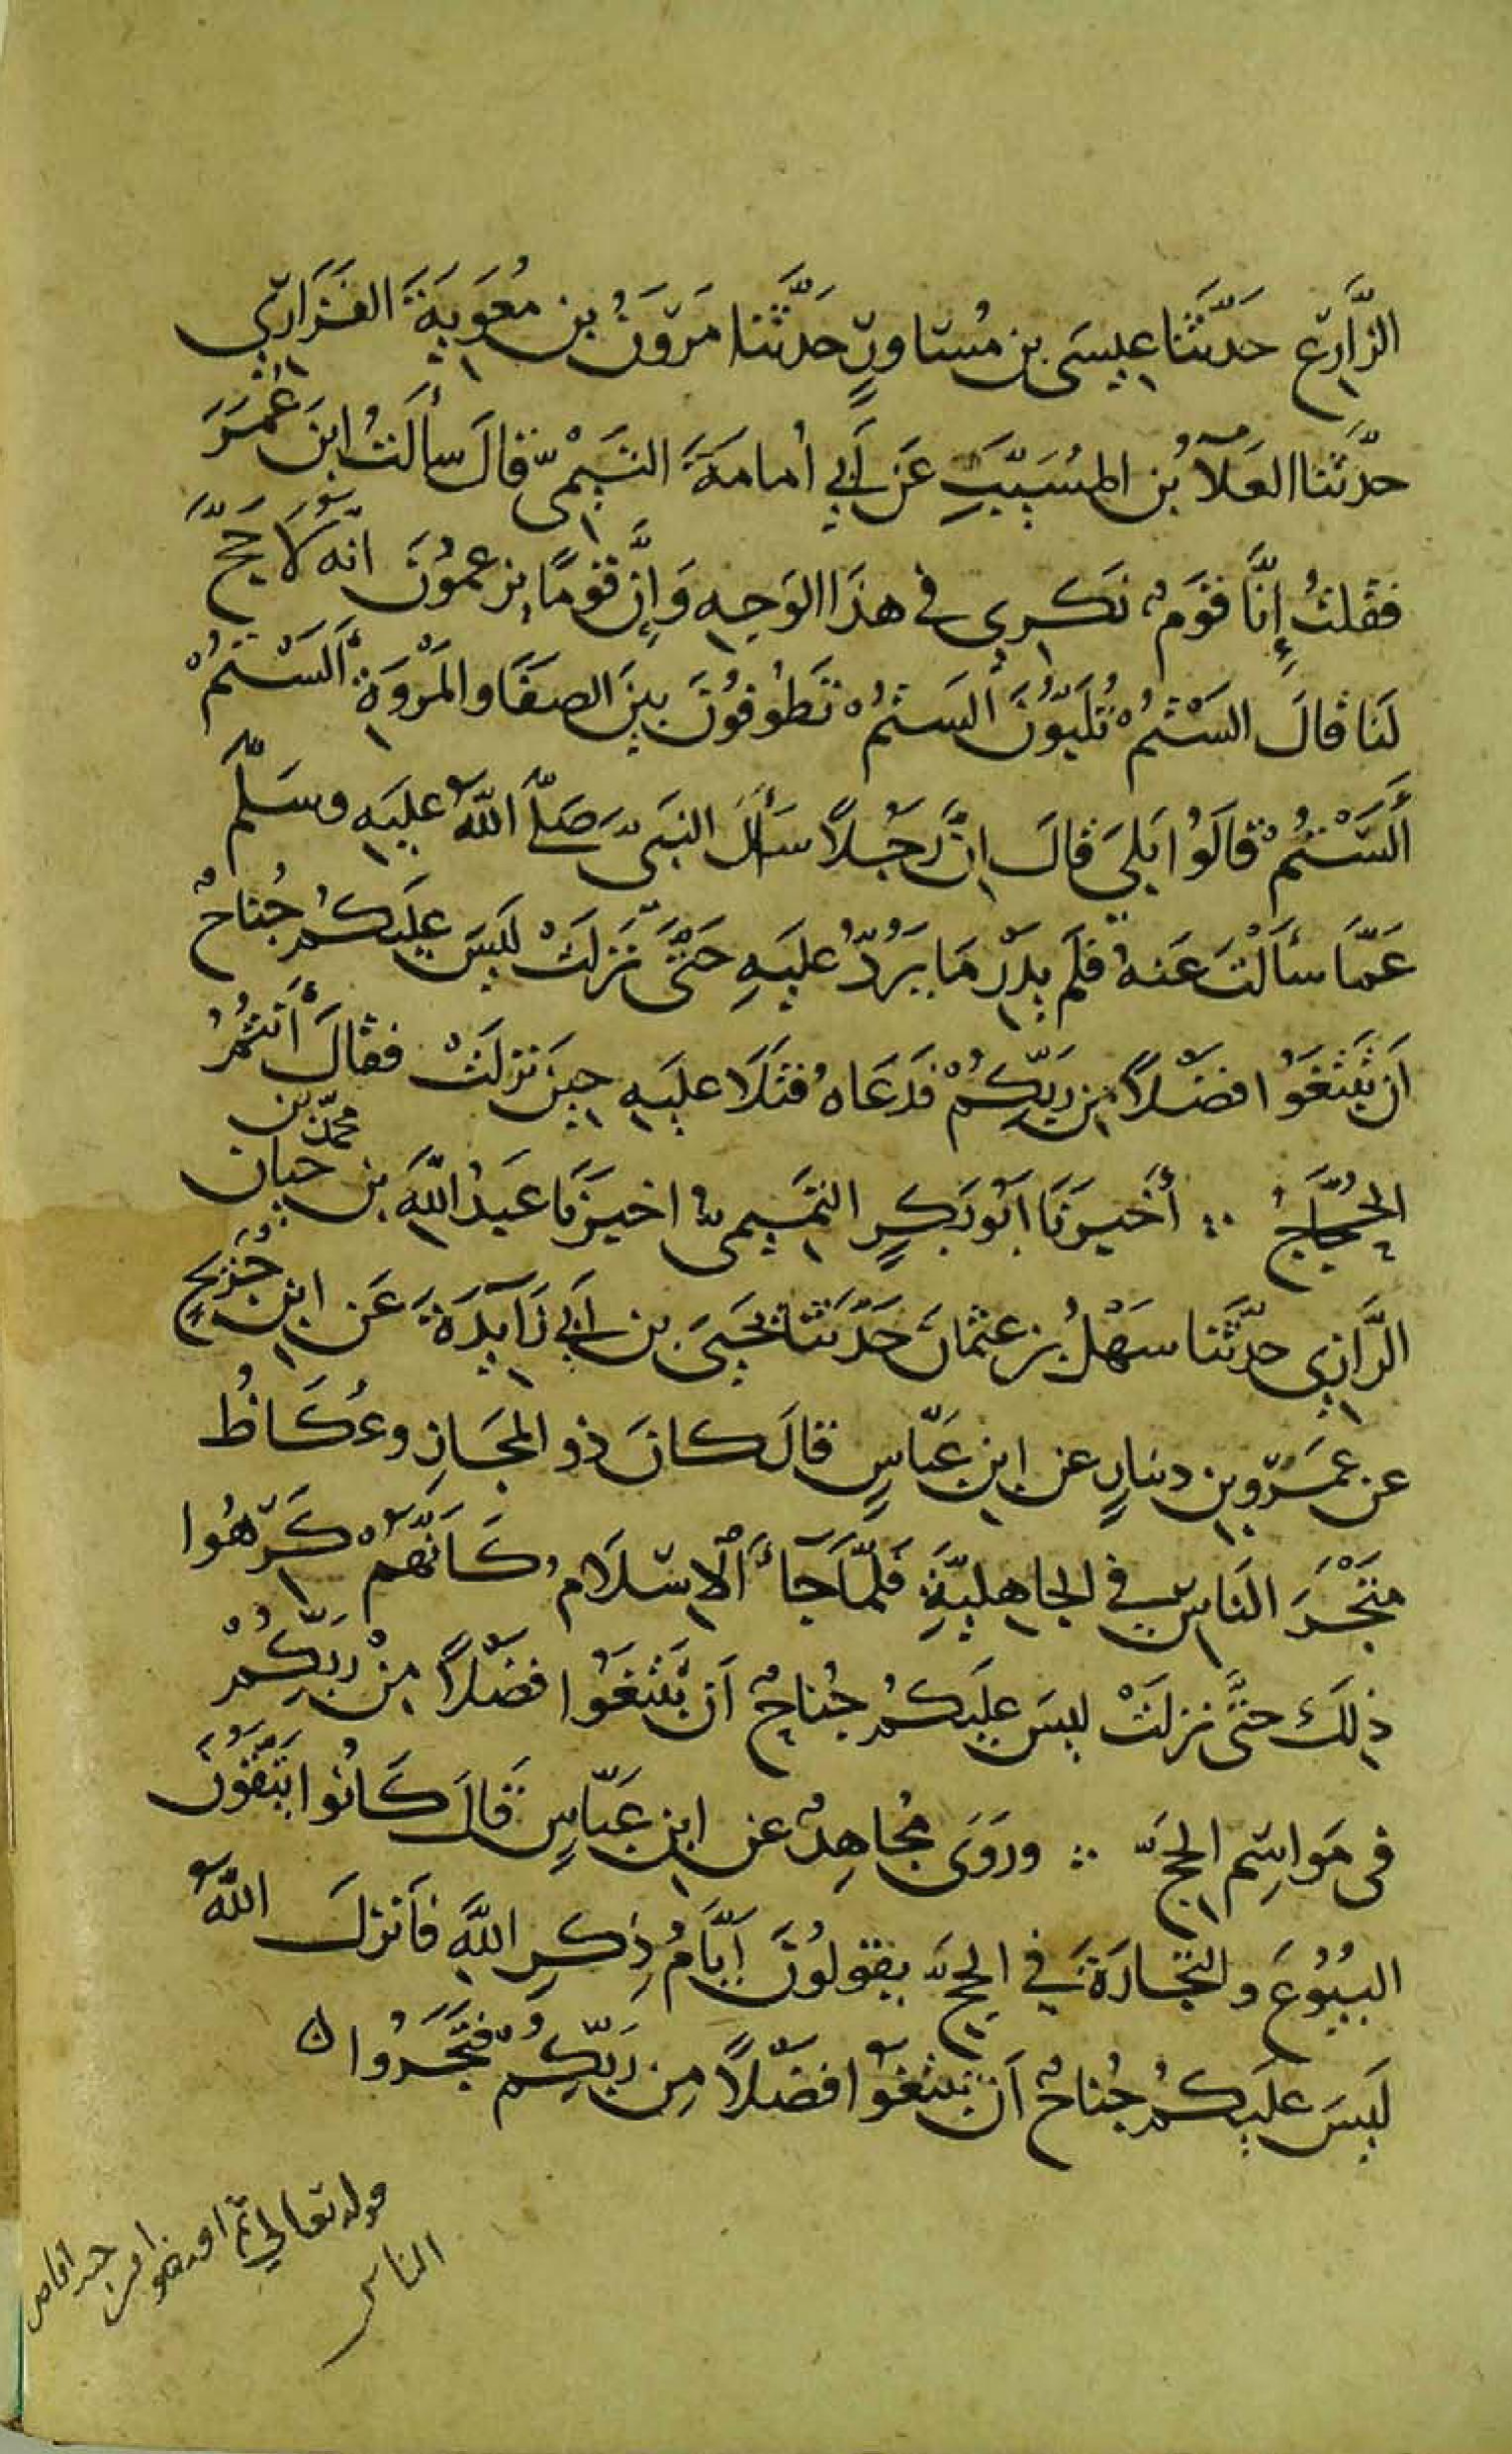 الزَّارِع حَدَّثَنا عِيسَى بن مُسَاوِرٍ حَدَّثَنا مَروَنُ بن مُعَوِيَةَ الفَزَارِيّ
حدَّثَنا العَلآءُ بُن المسُيَّبِ عَن أَبِي أُمامَةَ التَيْمىّ قالَ سأَلتُ ابنَ عُمَرَ
فقلتُ إِنَّا قَومٌ نَكرِى فى هذَا الوَجهِ وَإِنَّ قَومًا يزعمُونَ انّهُ لَا حَجَّ
لَنا قالَ السَتْمُ تُلَبُّونَ أَلسَتمُ تَطُوفُونَ بينَ الصفَا وَالمَروَةِ أَلَسْتمُ
أَلَسْتُمْ قالَوُا بَلىَ قالَ إِنَّ رَجُلًا سَأَلَ النبَىّ صَلَّى اللّهُ عليَهِ وسَلّمَ
عَمَّا سأَلتَ عَنهُ فلَم يدَرْ مَا يَرُدُّ عليَهِ حَتَّى نَزلَتْ ليَسَ عليَكُم جُناحٌ
اَن تَبْتَغُوا فضلًا من رَبِّكُمْ فدَعَاهُ فتَلَا عليَهِ حينَ نزلَتْ فقالَ أَنْتُمُ
الحُجَّاجُ ∴ أَخبَرنَا أَبُو بَكرٍ التَّمِيمىُّ اخبَرنَا عَبدُ اللّهَ بن محمّد بن حيان
الرَّازِي حدَّثَنا سَهْلُ بن عثمانَ حَدَّثَنا يَحيَى بن أَبِي زَآيِدَةَ عَن ابنِ جُرَيجٍ
عن عمَرو بن دينارٍ عن ابنِ عَبّاسٍ قالَ كانَ ذو المجَازِ وعُكَاظُ
مَتْجَرَ النَاسِ في الجاهليَّةِ فَلمَّا جَآءَ الْإِسْلَامُ كَأَنَّهُمْ كَرِهُوا
ذلِكَ حتَّى نزلَتْ ليسَ عليَكُم جُناحٌ أَن تَبْتَغُوا فضلًا مِنْ رَبِّكُمْ
فى مَواسِم الحجّ ∴ ورَوَى مُجاهِدٌ عن ابنِ عَبّاسٍ قالَ كَانُوا يَتَّقُونَ
البيُوُعَ والتِجَارَةَ في الحجّ يقولُونَ أَيَّامُ ذِكرِ اللّهِ فأَنزلَ اللّهُ
لَيسَ عَلَيكُم جُناحٌ أَن تَبتَغُوا فضلًا مِن رَبِّكُم فتَجَرُوا ه
قوله تعالى ثم افيضوا من حيث افاض
الناس